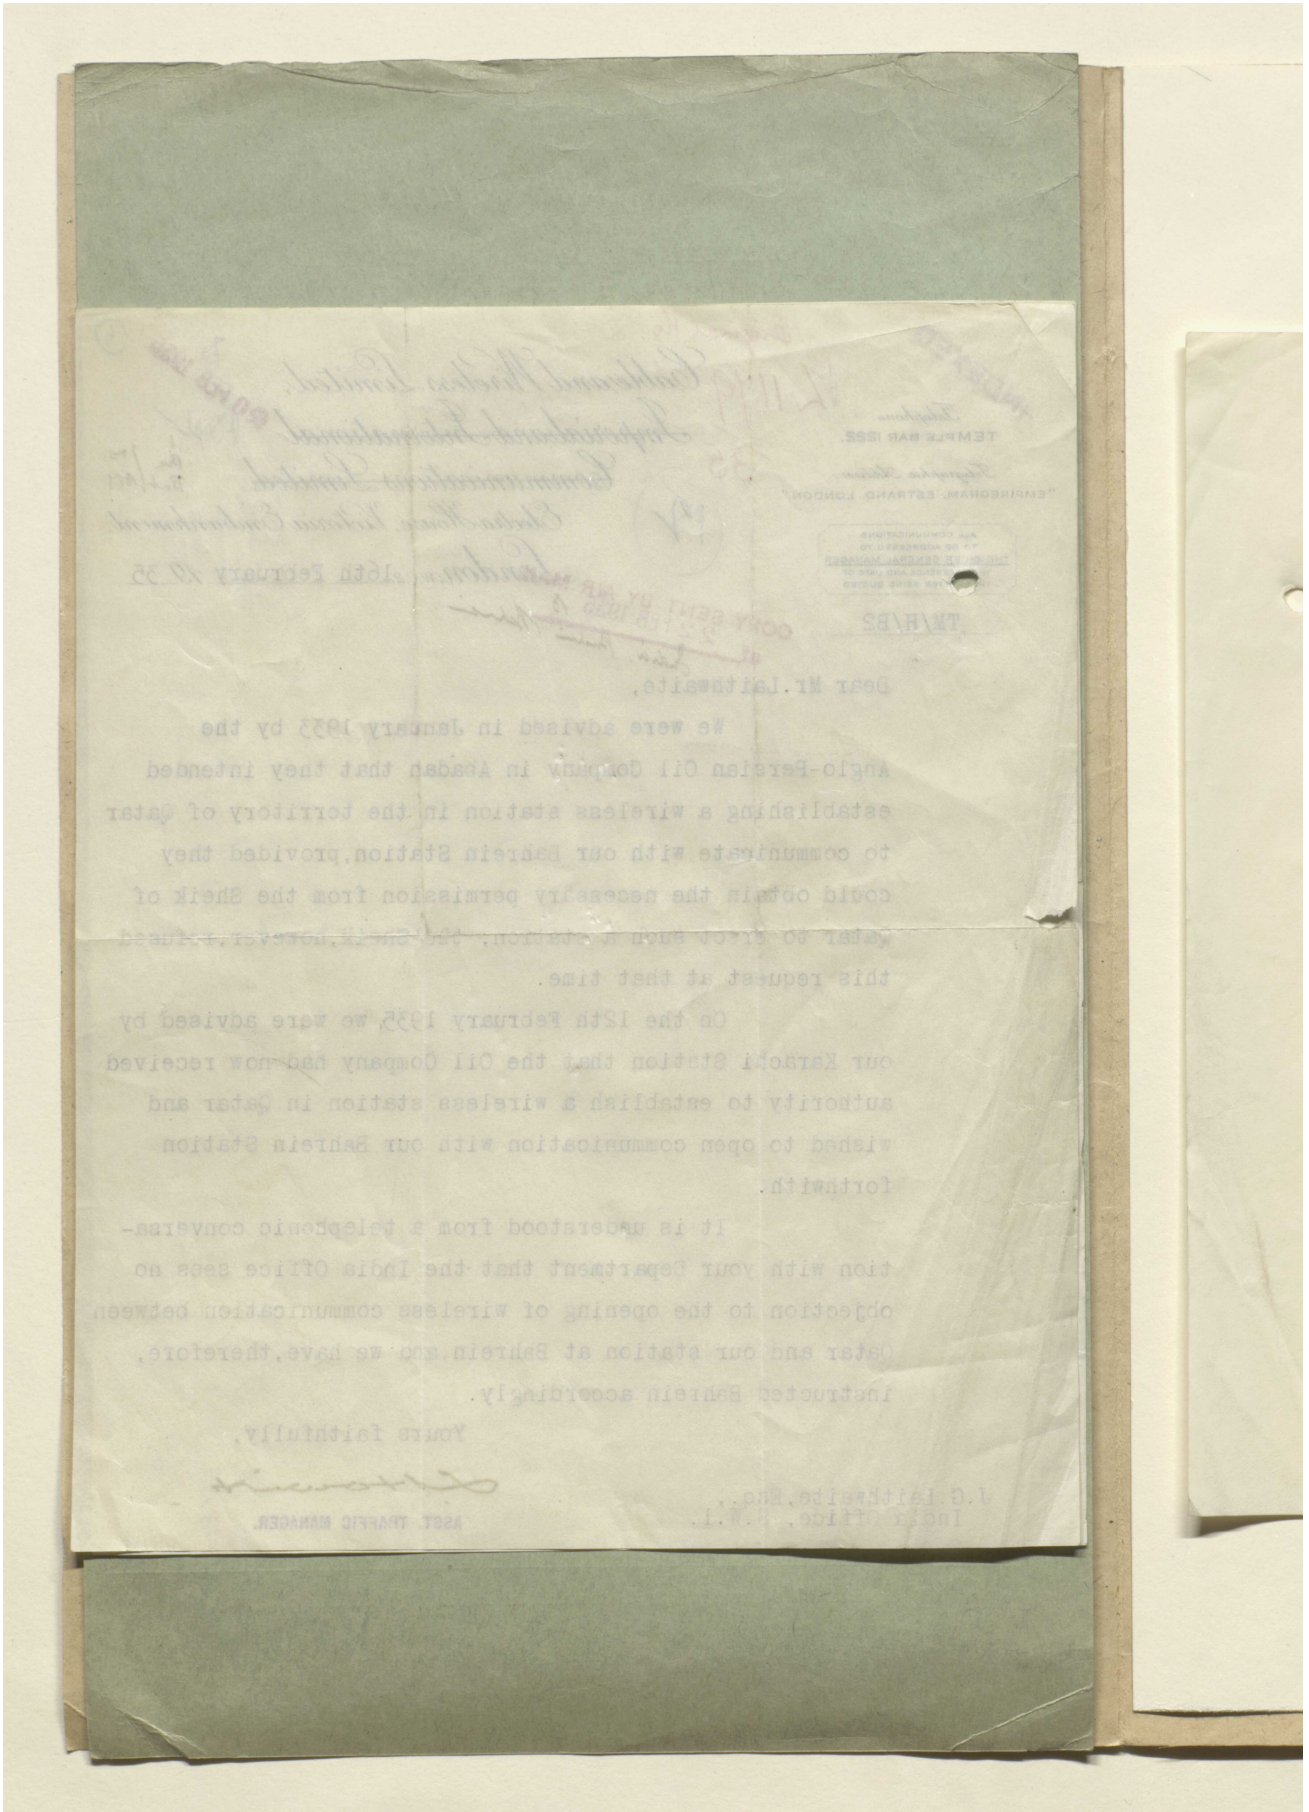 INDEXED
Cable and Wireless Limited.
Imperial and International
Communications Limited.
Electra House, Victoria Embankment,
London, 16th February 1935
Telephone
TEMPLE BAR 1222.
Telegraphic Address
"EMPIREGRAM, ESTRAND, LONDON"
ALL COMMUNICATIONS
TO BE ADDRESSED TO
TM/H/B2
COPY SENT BY AIR MAIL
Dear Mr. Laithwaite,
We were advised in January 1933 by the
Anglo-Persian Oil Company in Abadan that they intended
establishing a wireless station in the territory of Qatar
to communicate with our Bahrein Station, provided they
could obtain the necessary permission from the Sheik of
Qatar to erect such a station; the Sheik, however, refused
this request at that time.
On the 12th February 1935, we were advised by
our Karachi Station that the Oil Company had now received
authority to establish a wireless station in Qatar and
wished to open communication with our Bahrein Station
forthwith.
It is understood from a telephonic conversa-
tion with your Department that the India Office sees no
objection to the opening of wireless communication between
Qatar and our station at Bahrein and we have, therefore,
instructed Bahrein accordingly.
Yours faithfully,
ASST. TRAFFIC MANAGER.
J.G. Laithwaite, Esq.,
India Office, S.W.1.